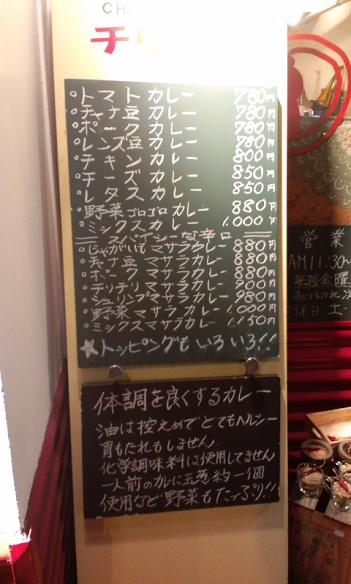 CH
チリ
○トマト カレー 780円
○チャナ豆 カレー 780円
○ポーク カレー 780円
○レンズ豆 カレー 780円
○チキン カレー 800円
○チーズ カレー 850円
○レタス カレー 850円
○野菜ゴロゴロ カレー 880円
○ミックス カレー 1,000円
辛口
○じゃがいも マサラカレー 880円
○チャナ豆 マサラカレー 880円
○ポーク マサラカレー 880円
○チリチリ マサラカレー 900円
○シュリンプ マサラカレー 980円
○野菜 マサラカレー 1,000円
○ミックス マサラカレー 1,150円
★トッピングも いろいろ!!
体調を良くするカレー
油は控えめで とてもヘルシー
胃もたれもしません。
化学調味料は使用してません
一人前のカレーに玉葱約一個
使用など 野菜もたっぷり!!
営業
AM11:30~
休日 土